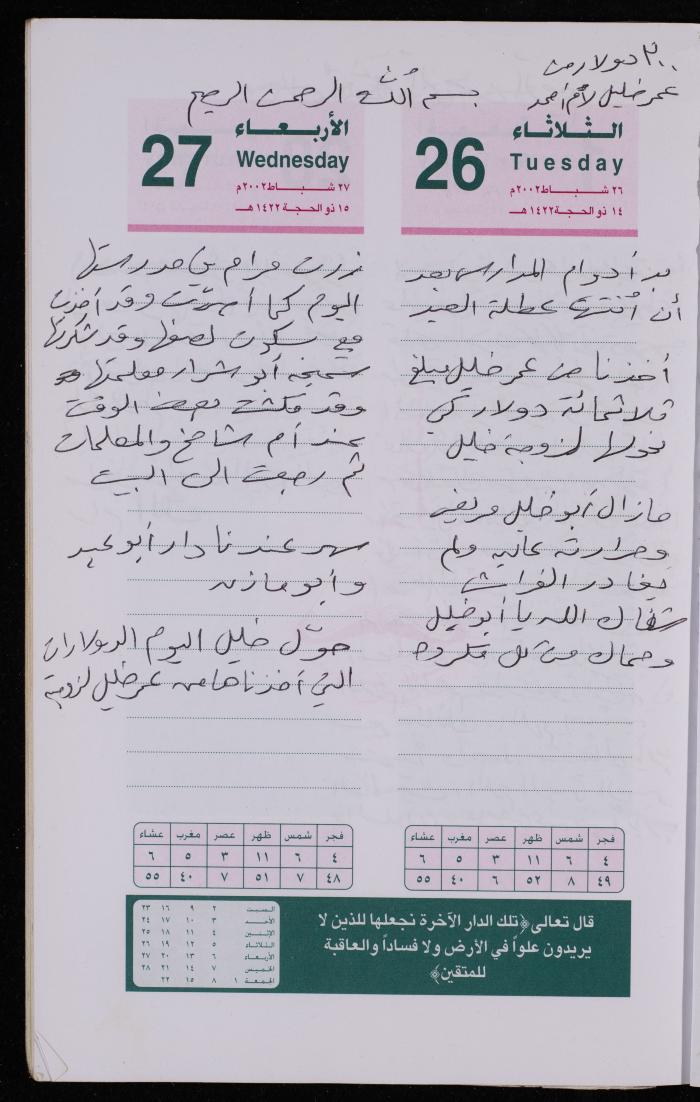 ٣٠٠ دولار من
عمر خليل لأم أحمد
بسم الله الرحمن الرحيم
الثلاثاء
26
Tuesday
٢٦ شباط ٢٠٠٢م
١٤ ذو الحجة ١٤٢٢هـ
بدأ دوام المدارس بعد
أن انتهت عطلة العيد
أخذنا من عمر خليل مبلغ
ثلاثمائة دولار كي
نحولها لزوجة خليل
مازال أبو خليل مريض
وحرارته عاليه ولم
يغادر الفراش
شفاك الله يا أبو خليل
وحماك من كل مكروه
الأربعاء
27
Wednesday
٢٧ شباط ٢٠٠٢م
١٥ ذو الحجة ١٤٢٢هـ
زرت مرام في مدرستها
اليوم كما أسرّت وقد أخذت
معي سكوت لصفها وقد شكرتها
سميحه أبو شرار معلمتها
وقد مكثت بعض الوقت
عند أم شامخ والمعلمات
ثم رجعت الى البيت
سهر عندنا دار أبو عبيد
وأبو مازن
حوّل خليل اليوم الدولارات
التي أخذناها من عمر خليل لزوجة
فجر شمس ظهر عصر مغرب عشاء
٤ ٦ ١١ ٣ ٥ ٦
٤٩ ٨ ٥٢ ٦ ٤٠ ٥٥
فجر شمس ظهر عصر مغرب عشاء
٤ ٦ ١١ ٣ ٥ ٦
٤٨ ٧ ٥١ ٧ ٤٠ ٥٥
قال تعالى ﴿تلك الدار الآخرة نجعلها للذين لا
يريدون علواً في الأرض ولا فساداً والعاقبة
للمتقين﴾
السبت ٢ ٩ ١٦ ٢٣
الأحد ٣ ١٠ ١٧ ٢٤
الإثنين ٤ ١١ ١٨ ٢٥
الثلاثاء ٥ ١٢ ١٩ ٢٦
الأربعاء ٦ ١٣ ٢٠ ٢٧
الخميس ٧ ١٤ ٢١ ٢٨
الجمعة ١ ٨ ١٥ ٢٢